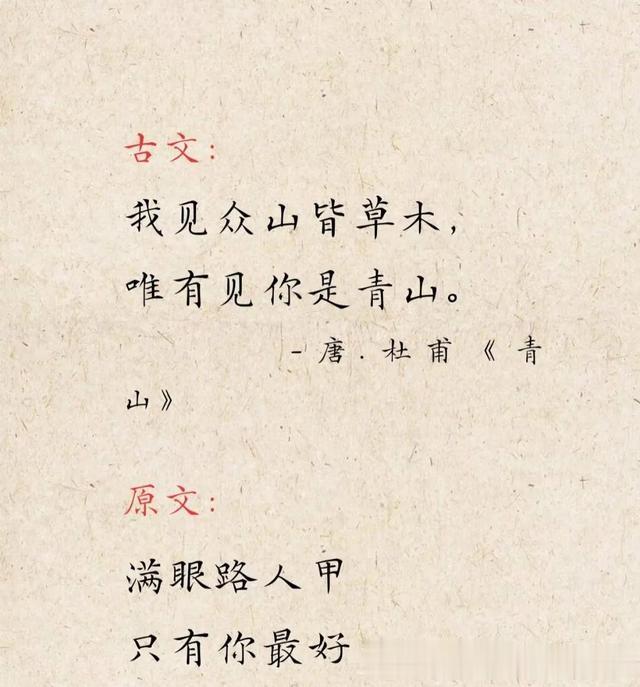 古文：
我见众山皆草木，
唯有见你是青山。
-唐.杜甫《青
山》
原文：
满眼路人甲
只有你最好